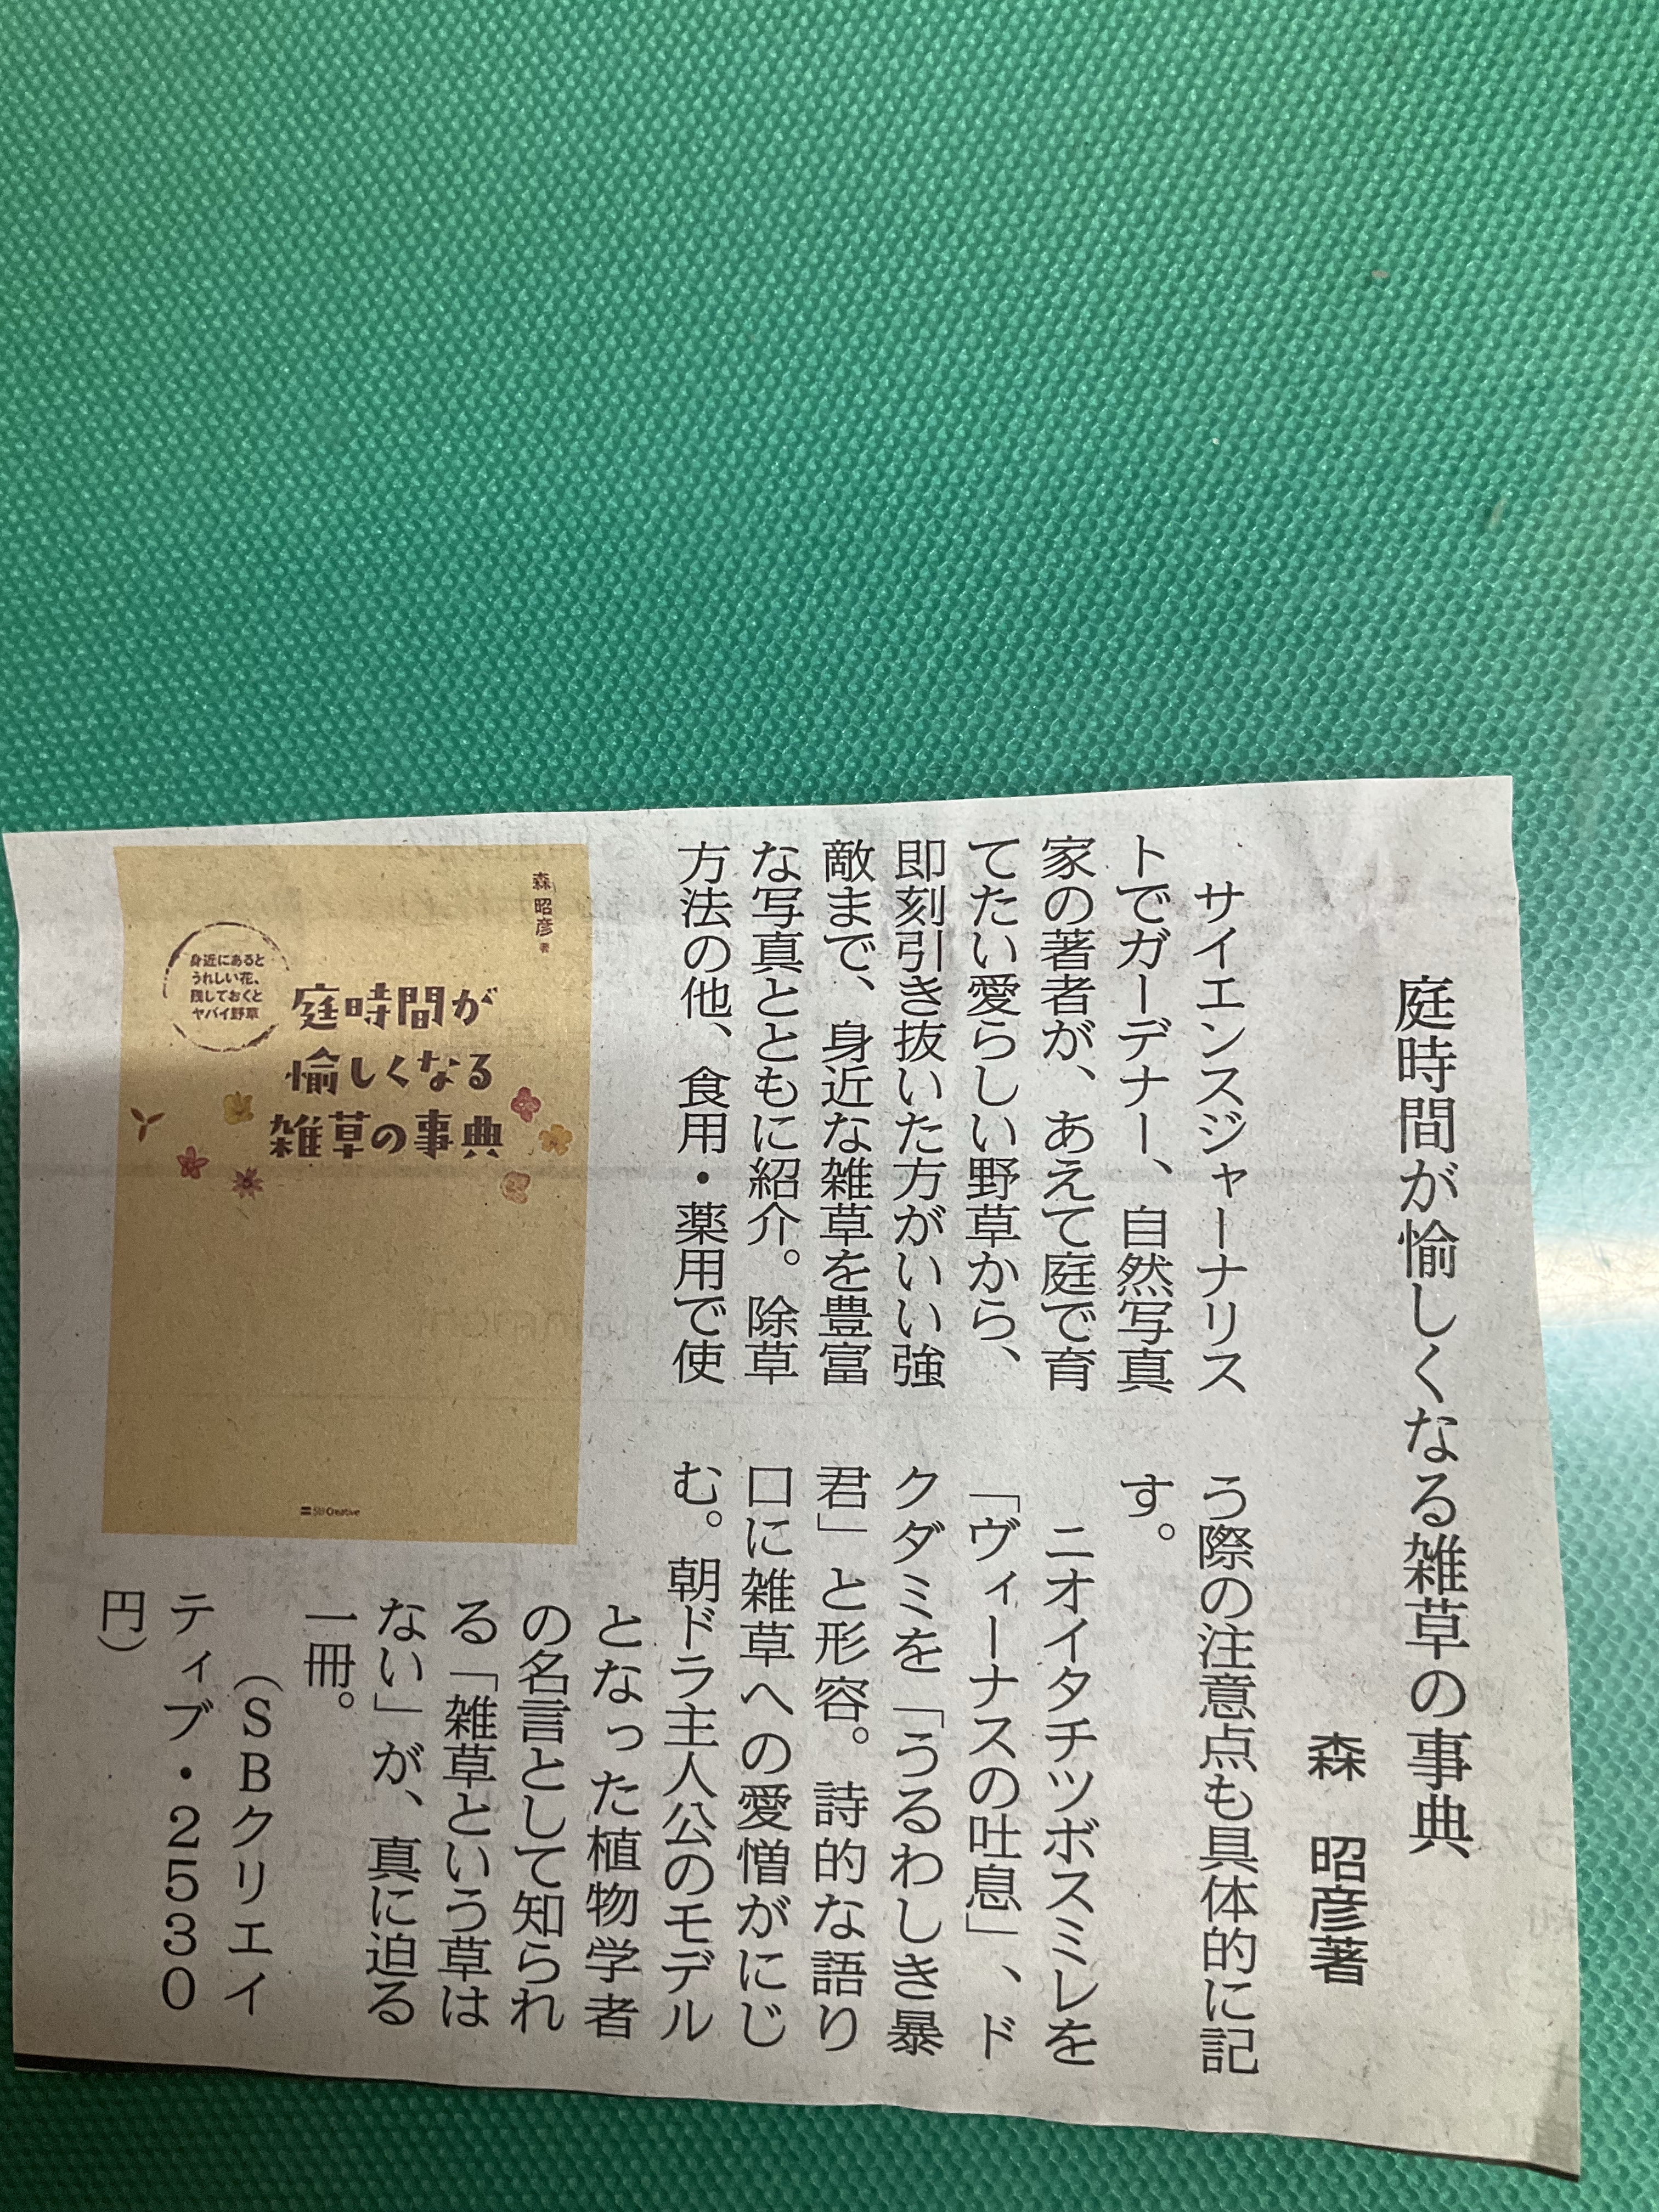 庭時間が愉しくなる雑草の事典
森 昭彦著
サイエンスジャーナリス
トでガーデナー、自然写真
家の著者が、あえて庭で育
てたい愛らしい野草から、
即刻引き抜いた方がいい強
敵まで、身近な雑草を豊富
な写真とともに紹介。除草
方法の他、食用・薬用で使
う際の注意点も具体的に記
す。
ニオイタチツボスミレを
「ヴィーナスの吐息」、ド
クダミを「うるわしき暴
君」と形容。詩的な語り
口に雑草への愛憎がにじ
む。朝ドラ主人公のモデル
となった植物学者
の名言として知られ
る「雑草という草は
ない」が、真に迫る
一冊。
(SBクリエイ
ティブ・2530
円)
森 昭彦 著
身近にあると
うれしい花、
残しておくと
ヤバイ野草
庭時間が
愉しくなる
雑草の事典
SB Creative